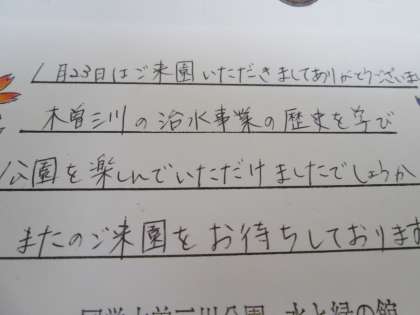 1月23日はご来園いただきましてありがとうございま
木曽三川の治水事業の歴史を学び
公園を楽しんでいただけましたでしょうか
またのご来園をお待ちしております